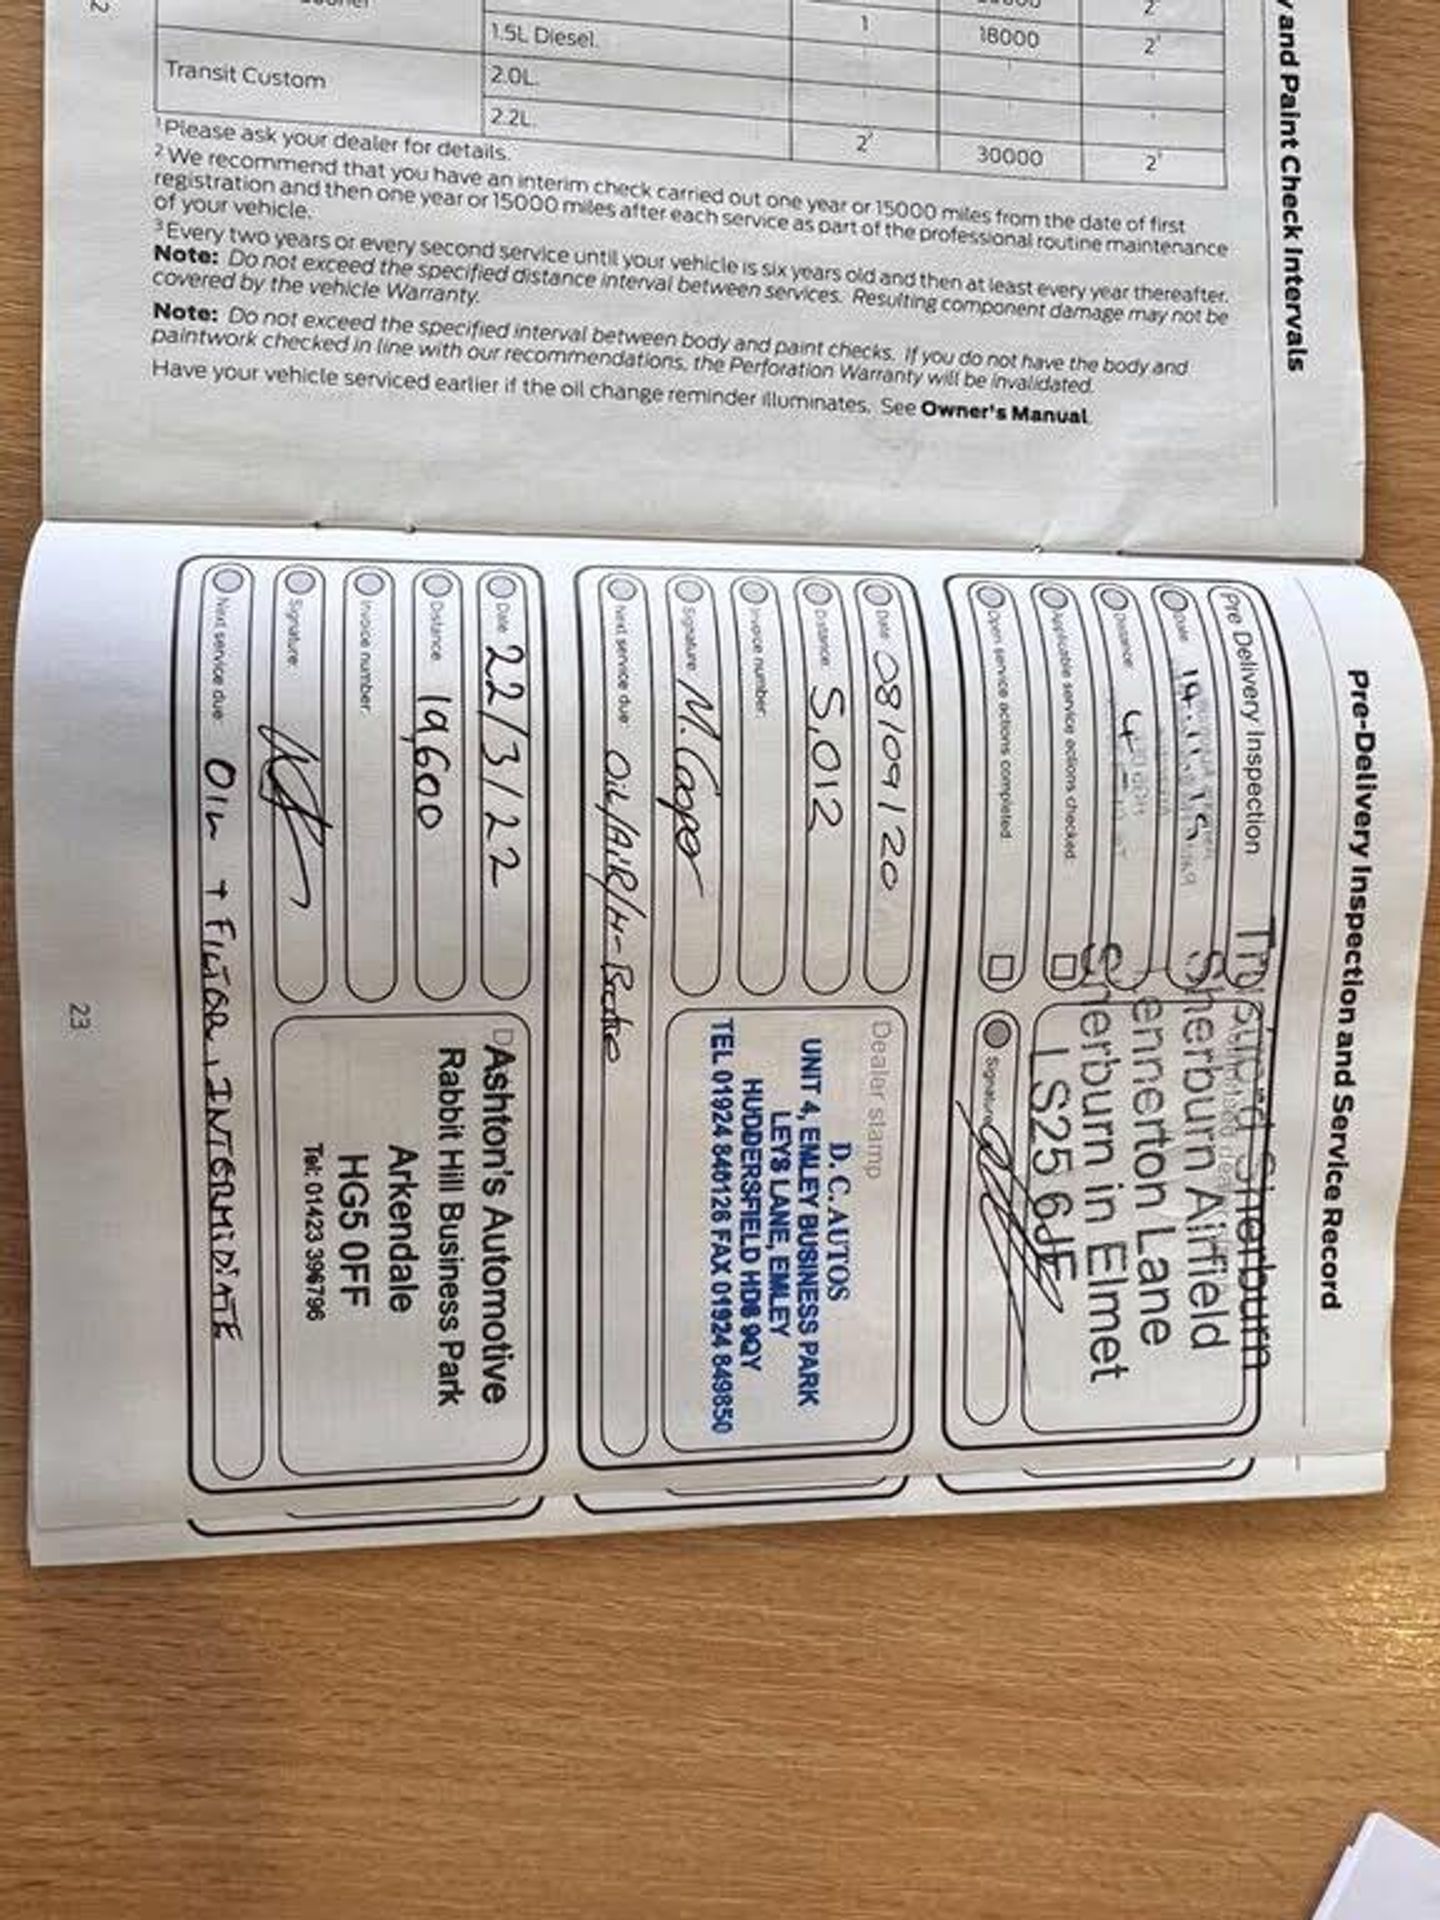 y and Paint Check Intervals
1
18000
2
1.5L Diesel.
2¹
Transit Custom
2.0L.
2.2L.
2²
30000
2¹
¹Please ask your dealer for details.
²We recommend that you have an interim check carried out one year or 15000 miles from the date of first
registration and then one year or 15000 miles after each service as part of the professional routine maintenance
of your vehicle.
³Every two years or every second service until your vehicle is six years old and then at least every year thereafter.
Note: Do not exceed the specified distance interval between services. Resulting component damage may not be
covered by the vehicle Warranty.
Note: Do not exceed the specified interval between body and paint checks. If you do not have the body and
paintwork checked in line with our recommendations, the Perforation Warranty will be invalidated.
Have your vehicle serviced earlier if the oil change reminder illuminates. See Owner's Manual.
2
Pre-Delivery Inspection and Service Record
Pre Delivery Inspection
Sherburn
Date:
Sherburn Airfield
Distance: 4
Lennerton Lane
Applicable service actions checked:
Sherburn in Elmet
Open service actions completed:
LS25 6JE
Signature:
Date: 08/09/20
Dealer stamp
Distance: 5,012
Invoice number:
Signature: M. Cooper
D.C. AUTOS
UNIT 4, EMLEY BUSINESS PARK
LEYS LANE, EMLEY
HUDDERSFIELD HD8 9QY
TEL 01924 848126 FAX 01924 849850
Next service due: Oil/AIR/
Date: 22/3/22
Distance: 19,600
Invoice number:
Signature:
Ashton's Automotive
Rabbit Hill Business Park
Arkendale
HG5 0FF
Tel: 01423 396796
Next service due: OIL + FILTOR, INTERMIDIATE
23